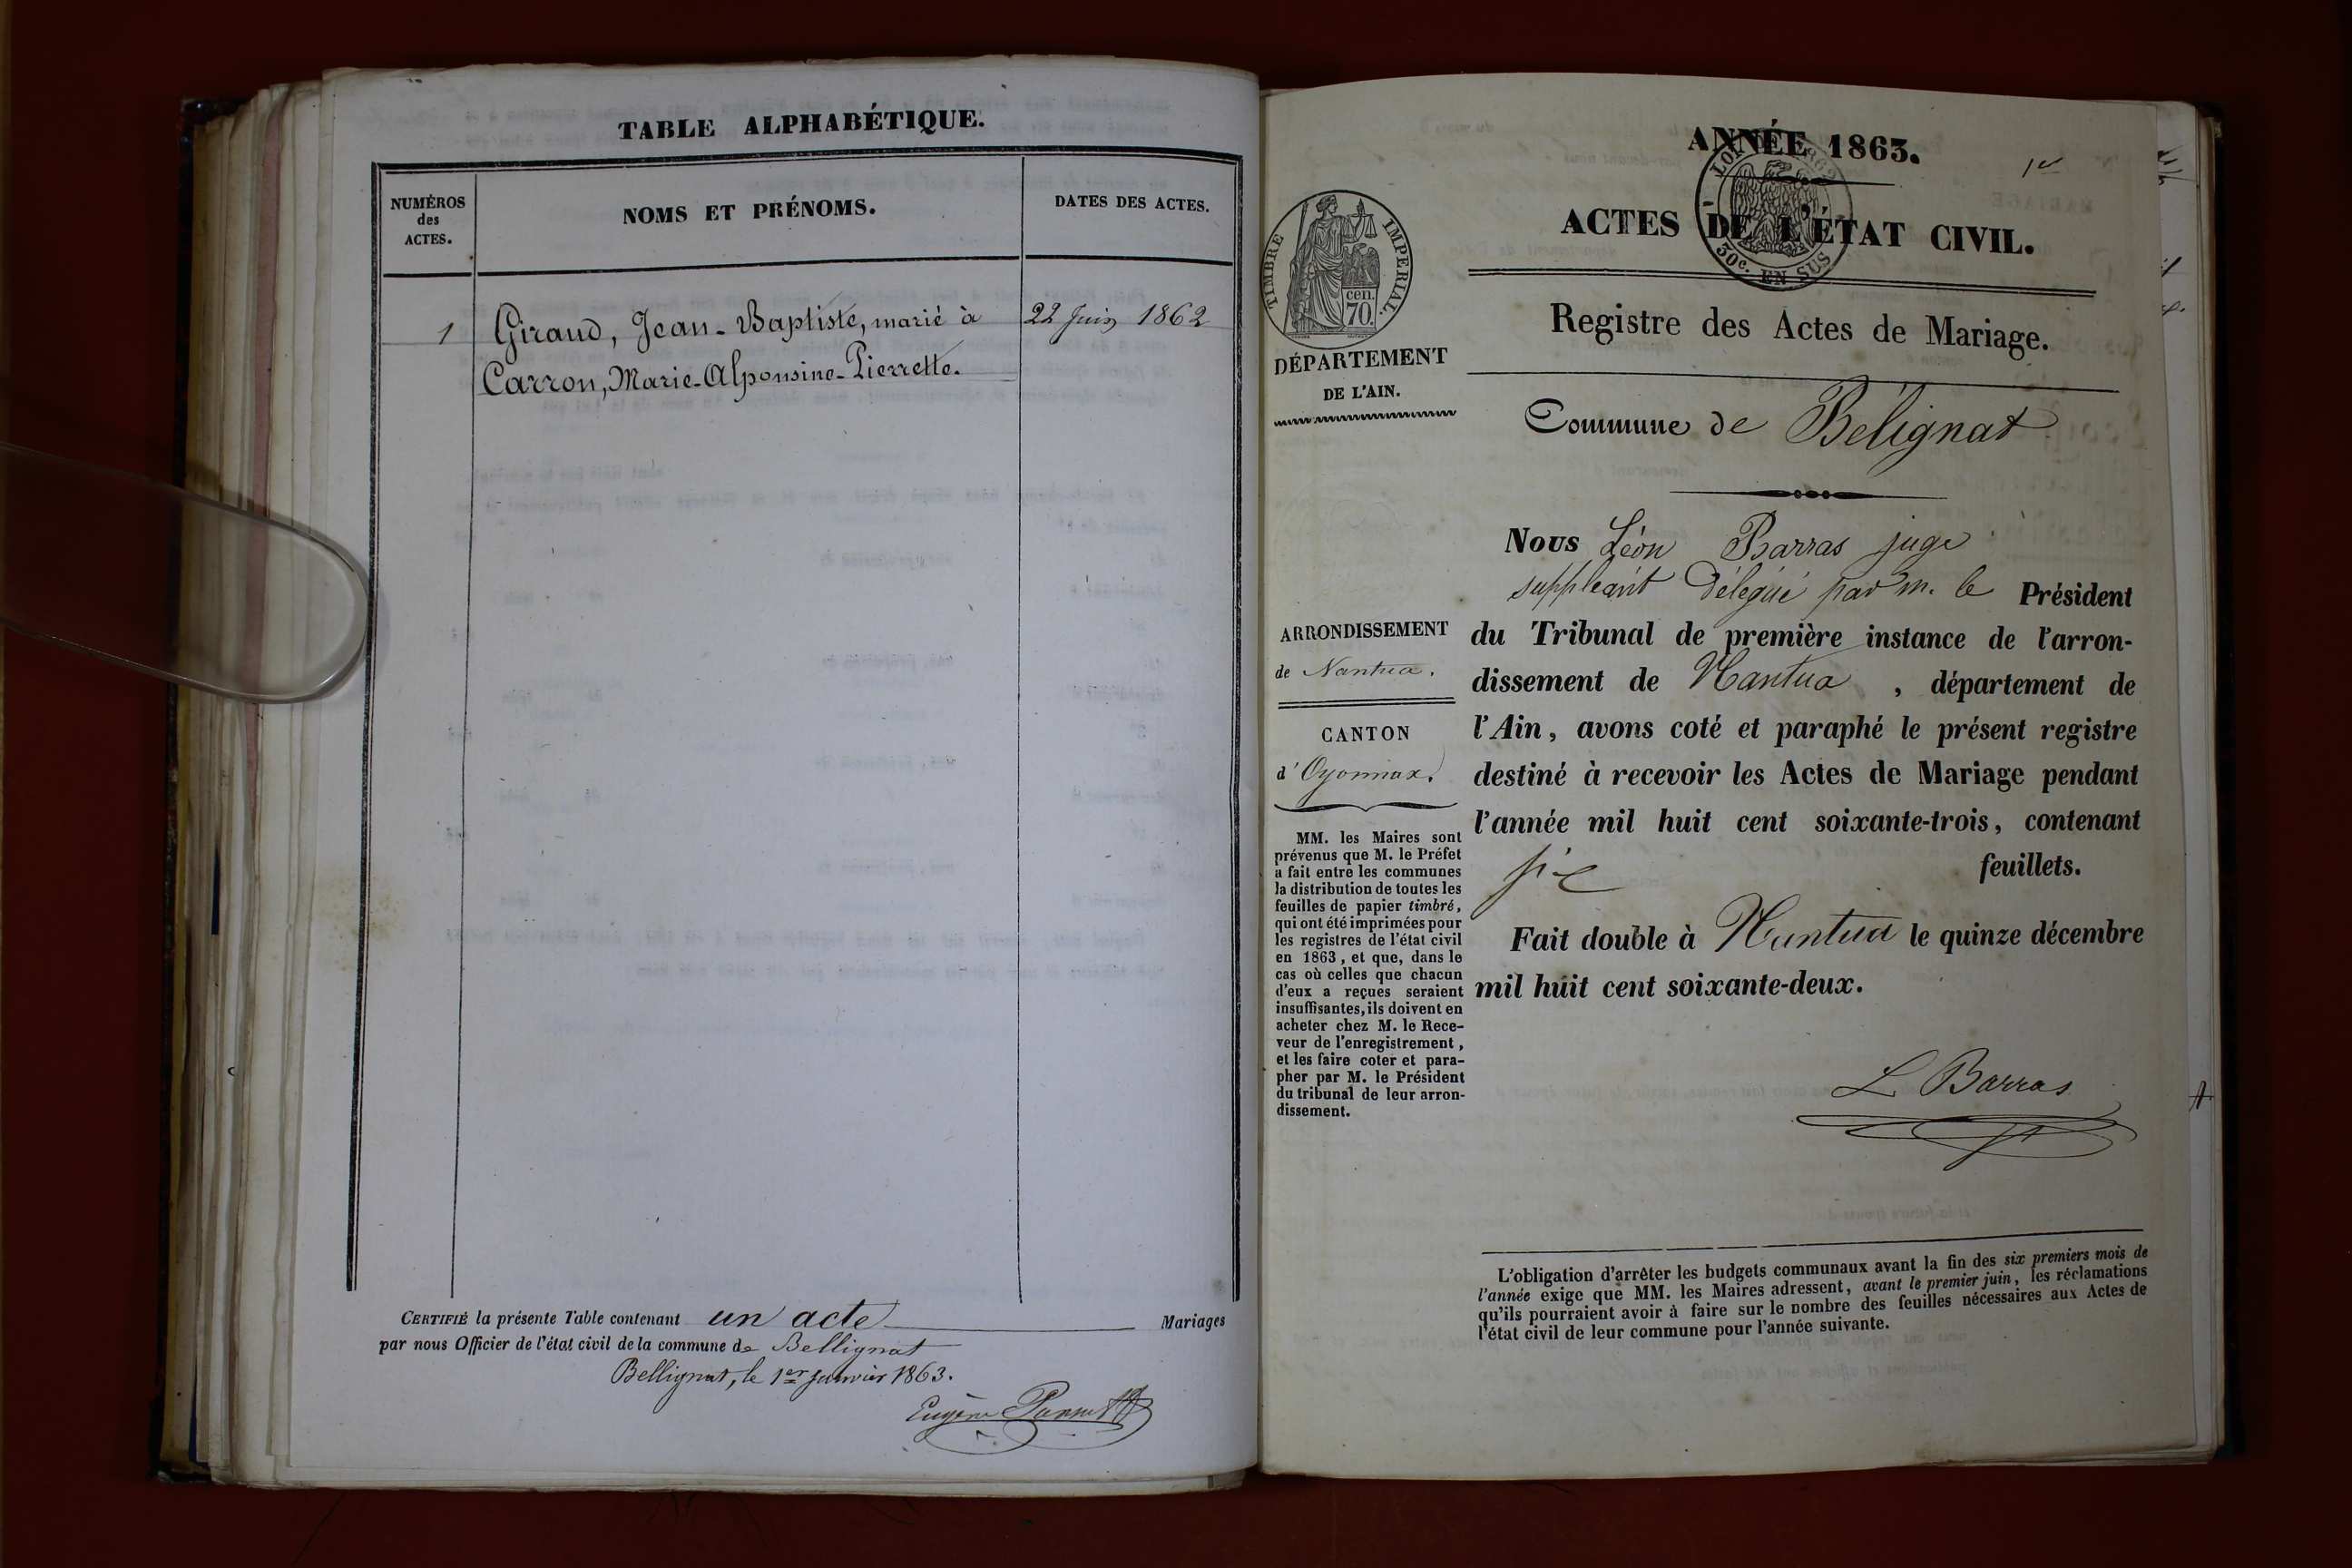 TABLE ALPHABÉTIQUE.
NUMÉROS
des
ACTES.
NOMS ET PRÉNOMS.
DATES DES ACTES.
1 Giraud, Jean-Baptiste, marié à 22 Juin 1862
Carron, Marie-Alponsine-Pierrette.
CERTIFIÉ la présente Table contenant un acte Mariages
par nous Officier de l'état civil de la commune de Bellignat
Bellignat, le 1er Janvier 1863.
Eugène
ANNÉE 1863.
1er
LOI
30c. EN SUS
ACTES DE L'ÉTAT CIVIL.
TIMBRE IMPERIAL.
cen.
70.
DÉPARTEMENT
DE L'AIN.
Registre des Actes de Mariage.
Commune de Bélignat
Nous Léon Barras juge
suppléant délégué par m. le Président
du Tribunal de première instance de l'arron-
dissement de Nantua, département de
l'Ain, avons coté et paraphé le présent registre
destiné à recevoir les Actes de Mariage pendant
l'année mil huit cent soixante-trois, contenant
six feuillets.
Fait double à Nantua le quinze décembre
mil huit cent soixante-deux.
L Barras
ARRONDISSEMENT
de Nantua.
CANTON
d'Oyonnax.
MM. les Maires sont
prévenus que M. le Préfet
a fait entre les communes
la distribution de toutes les
feuilles de papier timbré,
qui ont été imprimées pour
les registres de l'état civil
en 1863, et que, dans le
cas où celles que chacun
d'eux a reçues seraient
insuffisantes, ils doivent en
acheter chez M. le Rece-
veur de l'enregistrement,
et les faire coter et para-
pher par M. le Président
du tribunal de leur arron-
dissement.
L'obligation d'arrêter les budgets communaux avant la fin des six premiers mois de
l'année exige que MM. les Maires adressent, avant le premier juin, les réclamations
qu'ils pourraient avoir à faire sur le nombre des feuilles nécessaires aux Actes de
l'état civil de leur commune pour l'année suivante.